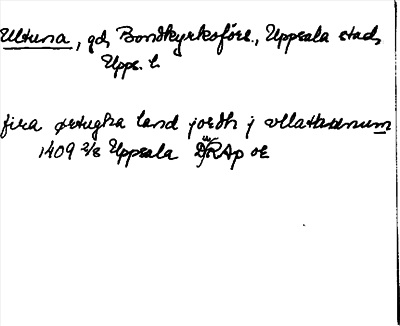 Ultuna, gd, Bondkyrkoförs., Uppsala stad,
Upps. l.
fira ørtugha land jordh j vllathunum
1409 2/8 Uppsala DRAp or